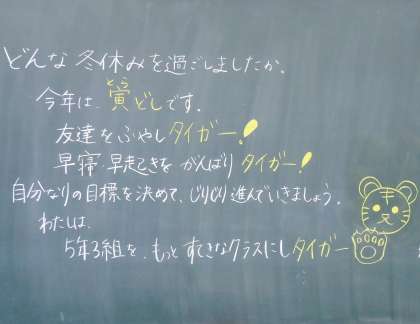 どんな冬休みを過ごしましたか。
今年は、寅どしです。
友達をふやしタイガー!
早寝・早起きを がんばりタイガー!
自分なりの目標を決めて、じりじり進んでいきましょう。
わたしは、
5年3組を、もっとすてきなクラスにしタイガー